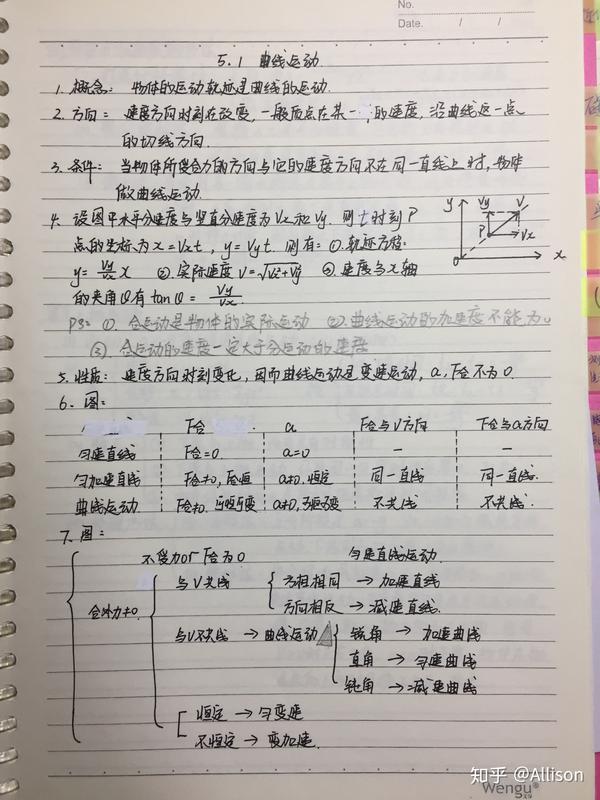 No.
Date. / /
5.1 曲线运动
1. 概念: 物体的运动轨迹是曲线的运动.
2. 方向: 速度方向时刻在改变, 一般质点在某一 的速度, 沿曲线这一点
的切线方向.
3. 条件: 当物体所受合力的方向与它的速度方向不在同一直线上时, 物体
做曲线运动.
4. 设图中水平分速度与竖直分速度为Vx和Vy. 则t时刻P
点的坐标为x=Vxt, y=Vyt 则有: ①.轨迹方程:
y=Vy/Vx x ②.实际速度V=√Vx²+Vy² ③.速度与x轴
的夹角θ有tanθ=Vy/Vx.
y Vy V P Vx O x
PS: ①. 合运动是物体的实际运动 ②.曲线运动的加速度不能为0
③. 合运动的速度一定大于分运动的速度
5. 性质: 速度方向时刻变化, 因而曲线运动是变速运动, a, F合不为0.
6. 图:
F合 a F合与V方向 F合与a方向
匀速直线 F合=0 a=0 — —
匀加速直线 F合≠0, F合恒 a≠0, 恒定 同一直线 同一直线.
曲线运动 F合≠0. 可恒可变 a≠0, 可恒可变 不共线 不共线.
7. 图:
不受力or F合为0 匀速直线运动.
合外力≠0.
与V共线 方相相同 → 加速直线
方向相反 → 减速直线.
与V不共线 → 曲线运动 锐角 → 加速曲线
直角 → 匀速曲线
钝角 → 减速曲线
恒定 → 匀变速
不恒定 → 变加速.
知乎 @Allison
Wengu